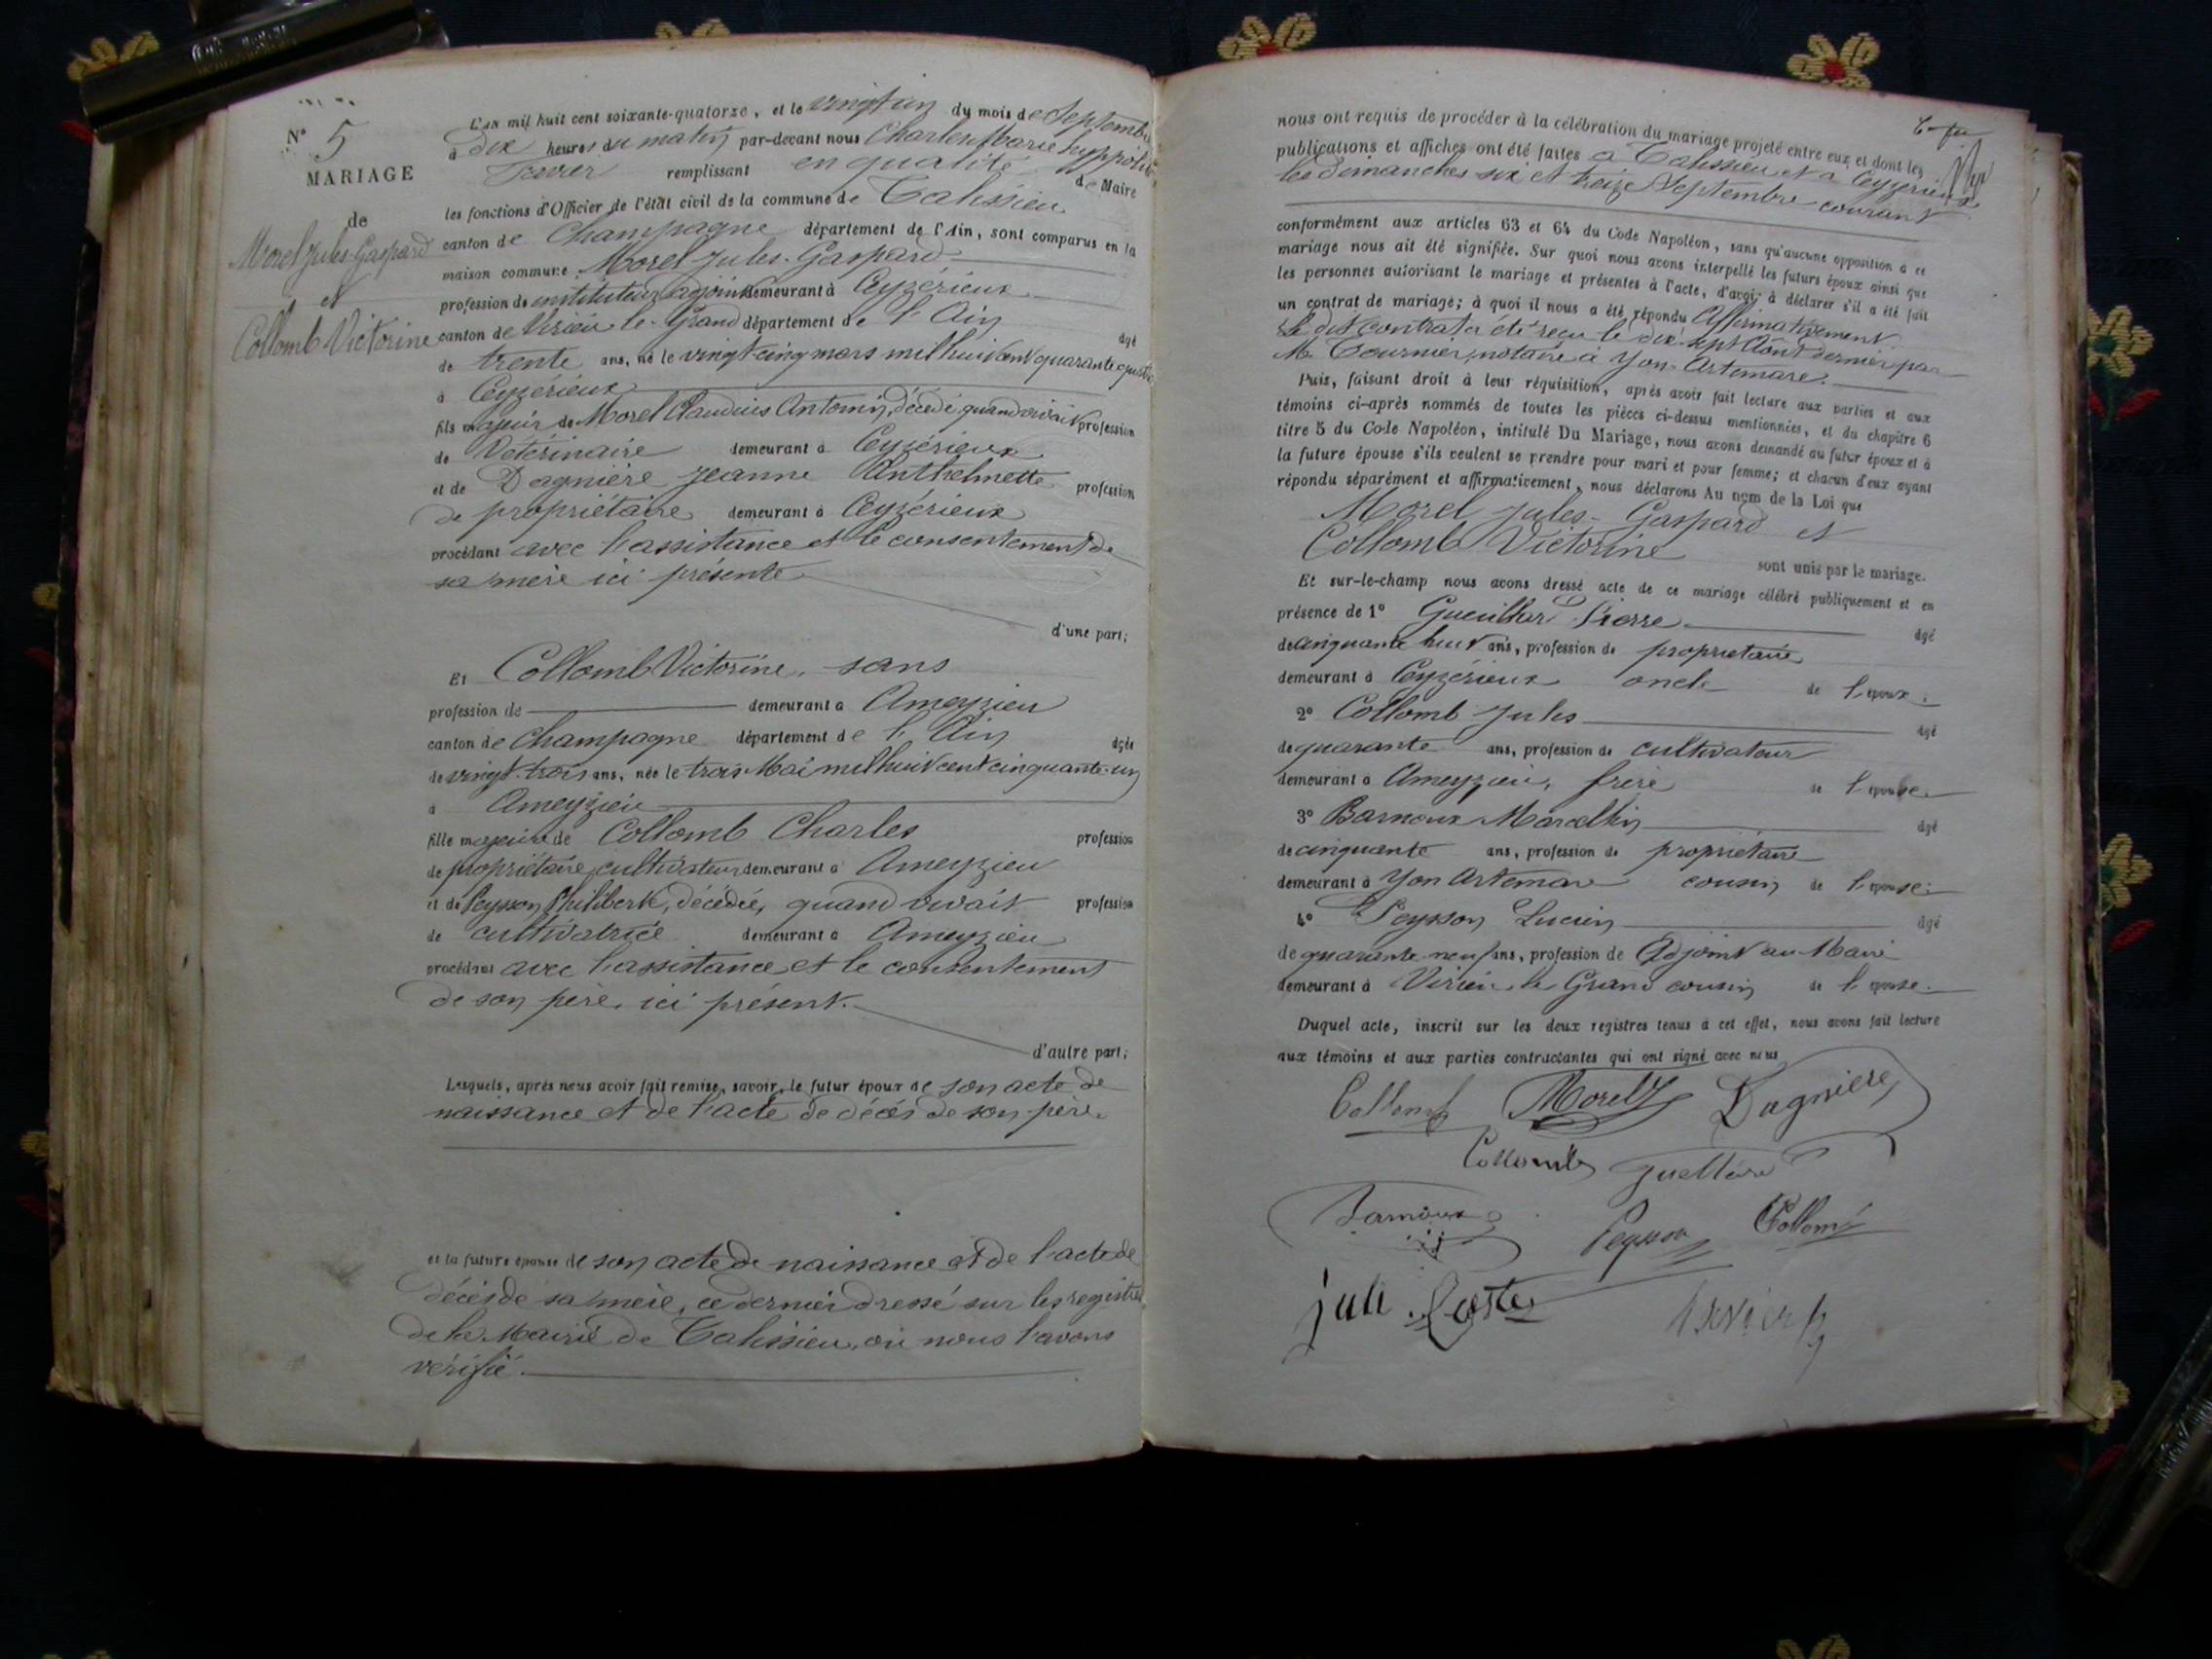 N° 5
MARIAGE
de
Morel Jules-Gaspard
et
Collomb Victorine
L'an mil huit cent soixante-quatorze, et le vingt un du mois de Septembre
à dix heures du matin par-devant nous Charles Marie Hyppolite
remplissant en qualité de Maire
les fonctions d'Officier de l'état civil de la commune de Talissieu
canton de Champagne département de l'Ain, sont comparus en la
maison commune Morel Jules-Gaspard
profession de instituteur adjoint demeurant à Ceyzérieux
canton de Virieu-le-Grand département de l'Ain âgé
de trente ans, né le vingt-cinq mars mil huit cent quarante-quatre
à Ceyzérieux
fils majeur de Morel Claudius Antonin, décédé, quand vivait profession
de Vétérinaire demeurant à Ceyzérieux
et de Dagnière Jeanne Anthelmette profession
de propriétaire demeurant à Ceyzérieux
procédant avec l'assistance et le consentement de
sa mère ici présente
d'une part;
Et Collomb Victorine, sans
profession de demeurant à Ameyzieu
canton de Champagne département de l'Ain âgée
de vingt-trois ans, née le trois Mai mil huit cent cinquante-un
à Ameyzieu
fille majeure de Collomb Charles profession
de propriétaire cultivateur demeurant à Ameyzieu
et de Peysson Philiberte, décédée, quand vivait profession
de cultivatrice demeurant à Ameyzieu
procédant avec l'assistance et le consentement
de son père, ici présent.
d'autre part;
Lesquels, après nous avoir fait remise, savoir, le futur époux de son acte de
naissance et de l'acte de décès de son père.
et la future épouse de son acte de naissance et de l'acte de
décès de sa mère, ce dernier dressé sur les registres
de la Mairie de Talissieu, où nous l'avons
vérifié.
nous ont requis de procéder à la célébration du mariage projeté entre eux et dont les
publications et affiches ont été faites à Talissieu et à Ceyzérieux
les dimanches six et treize Septembre courant
conformément aux articles 63 et 64 du Code Napoléon, sans qu'aucune opposition à ce
mariage nous ait été signifiée. Sur quoi nous avons interpellé les futurs époux ainsi que
les personnes autorisant le mariage et présentes à l'acte, d'avoir à déclarer s'il a été fait
un contrat de mariage; à quoi il nous a été répondu Affirmativement
Le dit contrat a été reçu le dix-sept Août dernier par
Me Tournier, notaire à Yon-Artemare.
Puis, faisant droit à leur réquisition, après avoir fait lecture aux parties et aux
témoins ci-après nommés de toutes les pièces ci-dessus mentionnées, et du chapitre 6
titre 5 du Code Napoléon, intitulé Du Mariage, nous avons demandé au futur époux et à
la future épouse s'ils veulent se prendre pour mari et pour femme; et chacun d'eux ayant
répondu séparément et affirmativement, nous déclarons Au nom de la Loi que
Morel Jules-Gaspard et
Collomb Victorine
sont unis par le mariage.
Et sur-le-champ nous avons dressé acte de ce mariage célébré publiquement et en
présence de 1° Pierre âgé
de cinquante huit ans, profession de propriétaire
demeurant à Ceyzérieux oncle de l'époux.
2° Collomb Jules âgé
de quarante ans, profession de cultivateur
demeurant à Ameyzieu, frère de l'épouse
3° Barnoux Marcellin âgé
de cinquante ans, profession de propriétaire
demeurant à Yon Artemare cousin de l'épouse:
4° Peysson Lucien âgé
de quarante-neuf ans, profession de Adjoint au Maire
demeurant à Virieu-le-Grand cousin de l'épouse.
Duquel acte, inscrit sur les deux registres tenus à cet effet, nous avons fait lecture
aux témoins et aux parties contractantes qui ont signé avec nous
Collomb Morel J Dagnière
Collomb
Barnoux Peysson Collomb